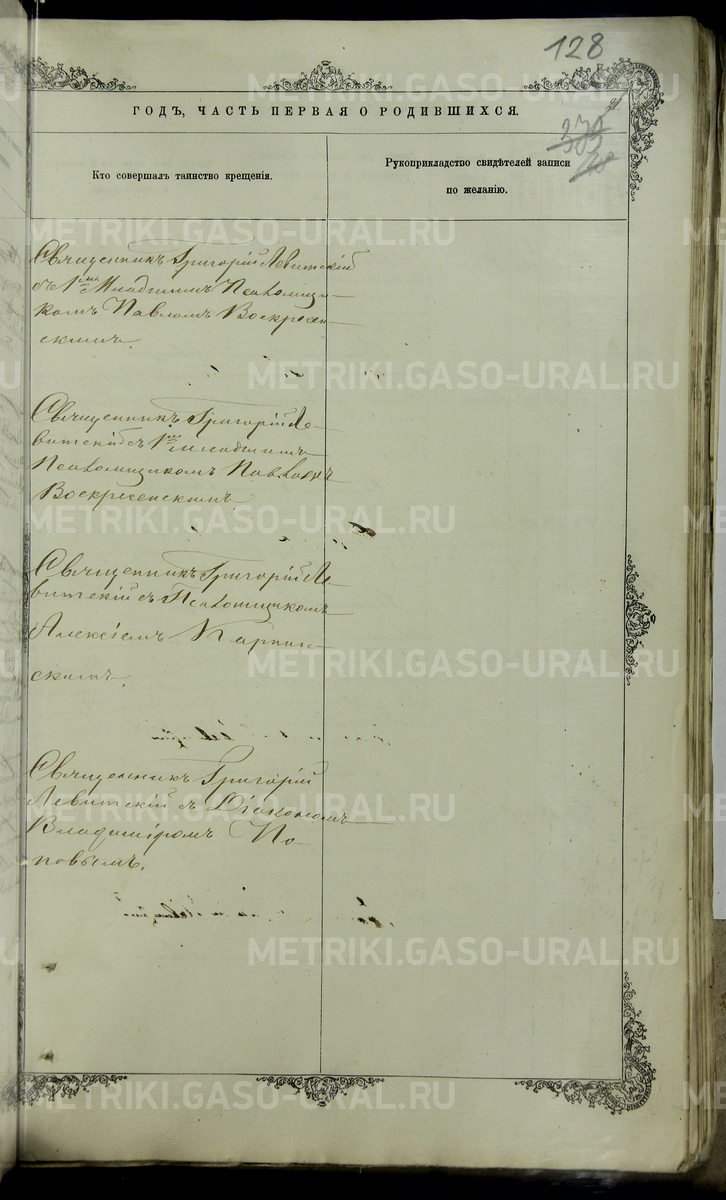 128
ГОДЪ, ЧАСТЬ ПЕРВАЯ О РОДИВШИХСЯ.
Кто совершалъ таинство крещенія.
Рукоприкладство свидѣтелей записи
по желанію.
Священникъ Григорій Левитскій
съ 1мъ Младшимъ Псаломщи-
комъ Павломъ Воскресен-
скимъ.
Священникъ Григорій Ле-
витскій съ 1мъ младшимъ
Псаломщикомъ Павломъ
Воскресенскимъ
Священникъ Григорій Ле-
витскій съ Псаломщикомъ
Алексіемъ
скимъ.
Священникъ Григорій
Левитскій съ Діакономъ
Владиміромъ По-
повымъ.
METRIKI.GASO-URAL.RU